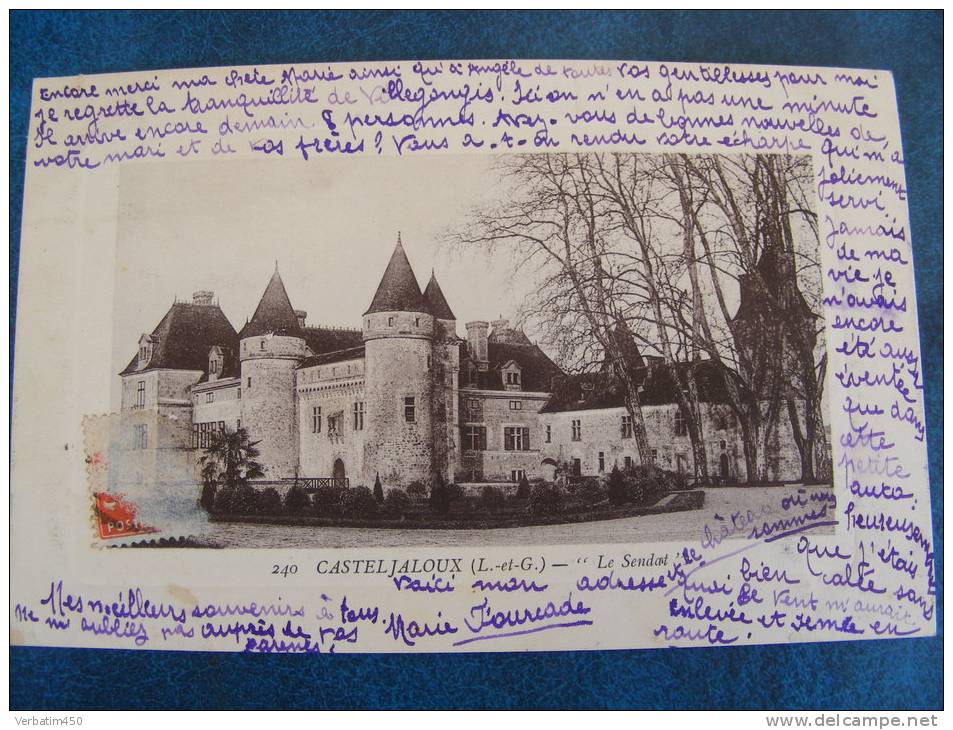 Encore merci ma chère Marie ainsi qu'à Angèle de toutes vos gentillesses pour moi
je regrette la tranquillité de Villegongis. Ici on n'en a pas une minute
Il arrive encore demain 8 personnes. Avez-vous de bonnes nouvelles de
votre mari et de vos frères? Vous a-t-on rendu votre écharpe qui m'a
joliement
servi.
Jamais
de ma
vie je
n'avais
encore
été aussi
éventée
que dans
cette
petite
auto.
heureusement
que j'étais
bien calée sans
quoi le vent m'aurait
enlevée et semée en
route.
240 CASTELJALOUX (L.-et-G.) — "Le Sendat"
Voici mon adresse
et le château où nous
sommes
Marie Fourcade
Mes meilleurs souvenirs à tous.
Ne m'oubliez pas auprès de vos
parents.
POS
Verbatim450
www.delcampe.net